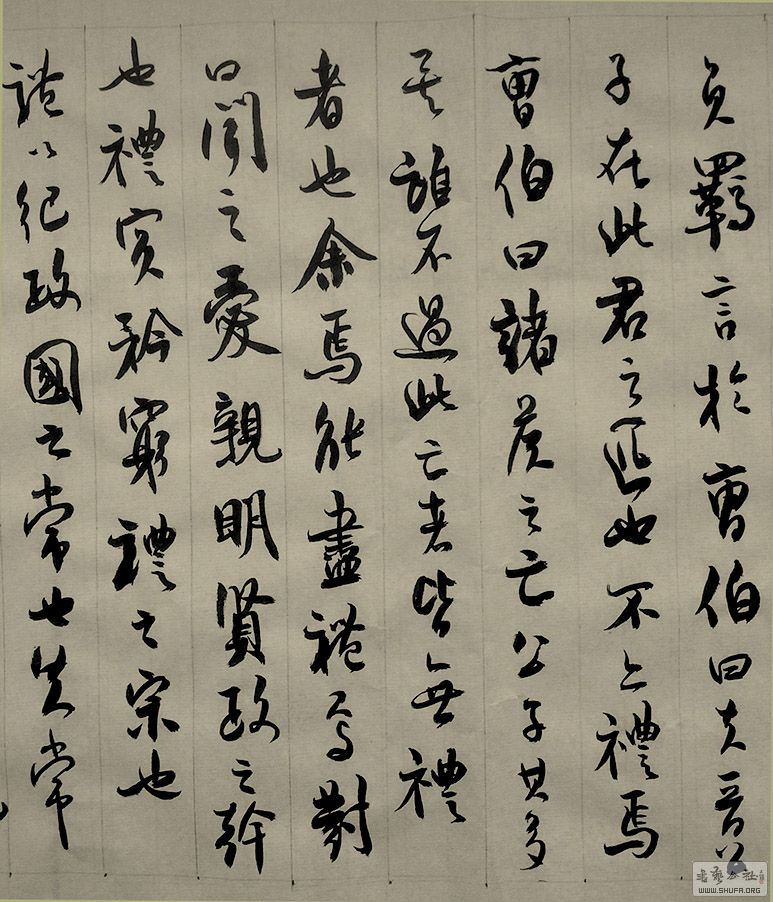 負羈言於曹伯曰夫晉公
子在此君之匹也不亦禮焉
曹伯曰諸侯之亡公子其多
矣誰不過此亡者皆無禮
者也余焉能盡禮焉對
曰聞之愛親明賢政之幹
也禮賓矜窮禮之宗也
禮以紀政國之常也失常
書藝公社
WWW.SHUFA.ORG